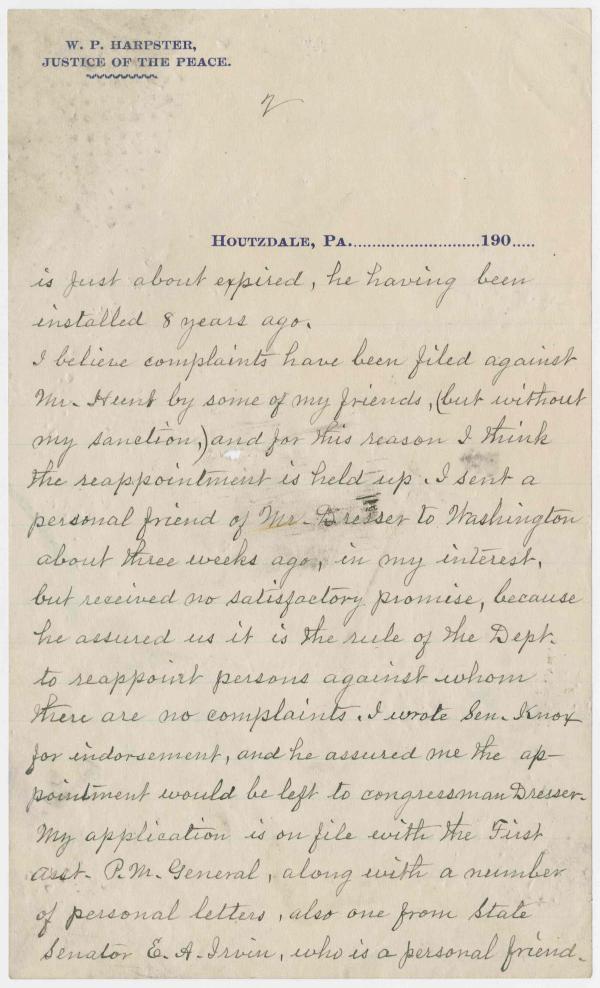 W. P. HARPSTER,
JUSTICE OF THE PEACE.
2
HOUTZDALE, PA..........................190.....
is just about expired, he having been
installed 8 years ago.
I believe complaints have been filed against
Mr. Hunt by some of my friends, (but without
my sanction,) and for this reason I think
the reappointment is held up. I sent a
personal friend of Mr. Dresser to Washington
about three weeks ago, in my interest,
but received no satisfactory promise, because
he assured us it is the rule of the Dept.
to reappoint persons against whom
there are no complaints. I wrote Sen. Knox
for indorsement, and he assured me the ap-
pointment would be left to congressman Dresser.
My application is on file with the First
asst. P.M. General, along with a number
of personal letters, also one from State
Senator E. A. Irvin, who is a personal friend.